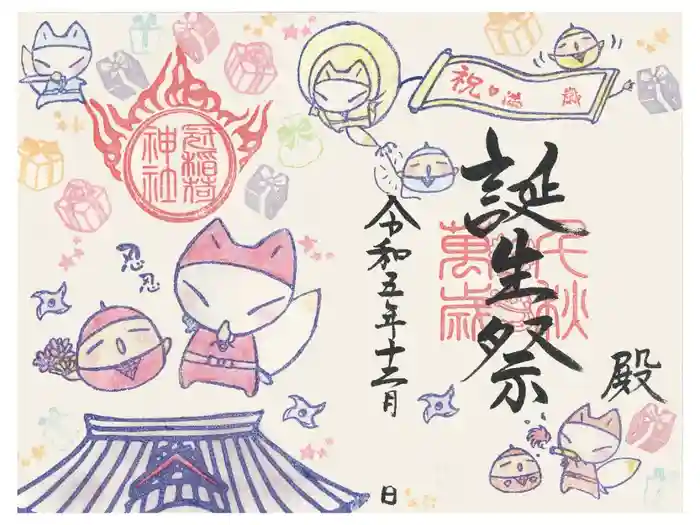 祝♥満　歳
殿
誕生祭
千秋
萬歳
令和五年十二月　日
冠稲荷
神社
忍
忍